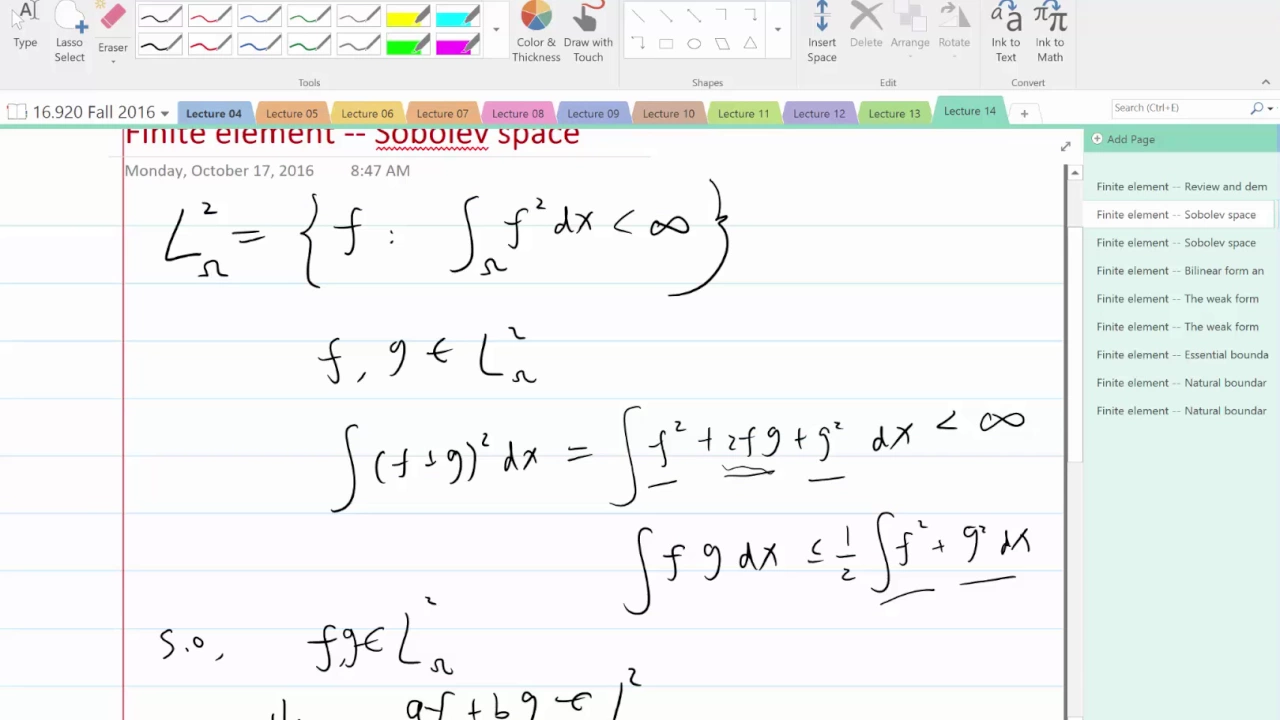 Type
Lasso Select
Eraser
Color & Thickness
Draw with Touch
Insert Space
Delete
Arrange
Rotate
Ink to Text
Ink to Math
Tools
Shapes
Edit
Convert
16.920 Fall 2016
Lecture 04
Lecture 05
Lecture 06
Lecture 07
Lecture 08
Lecture 09
Lecture 10
Lecture 11
Lecture 12
Lecture 13
Lecture 14
Search (Ctrl+E)
Finite element -- Sobolev space
Monday, October 17, 2016 8:47 AM
L²_Ω = { f : ∫_Ω f² dx < ∞ }
f, g ∈ L²_Ω
∫ (f+g)² dx = ∫ f² + 2fg + g² dx < ∞
∫ f g dx ≤ 1/2 ∫ f² + g² dx
So, f,g ∈ L²_Ω
af + bg ∈ L²
Add Page
Finite element -- Review and dem
Finite element -- Sobolev space
Finite element -- Sobolev space
Finite element -- Bilinear form an
Finite element -- The weak form
Finite element -- The weak form
Finite element -- Essential bounda
Finite element -- Natural boundar
Finite element -- Natural boundar